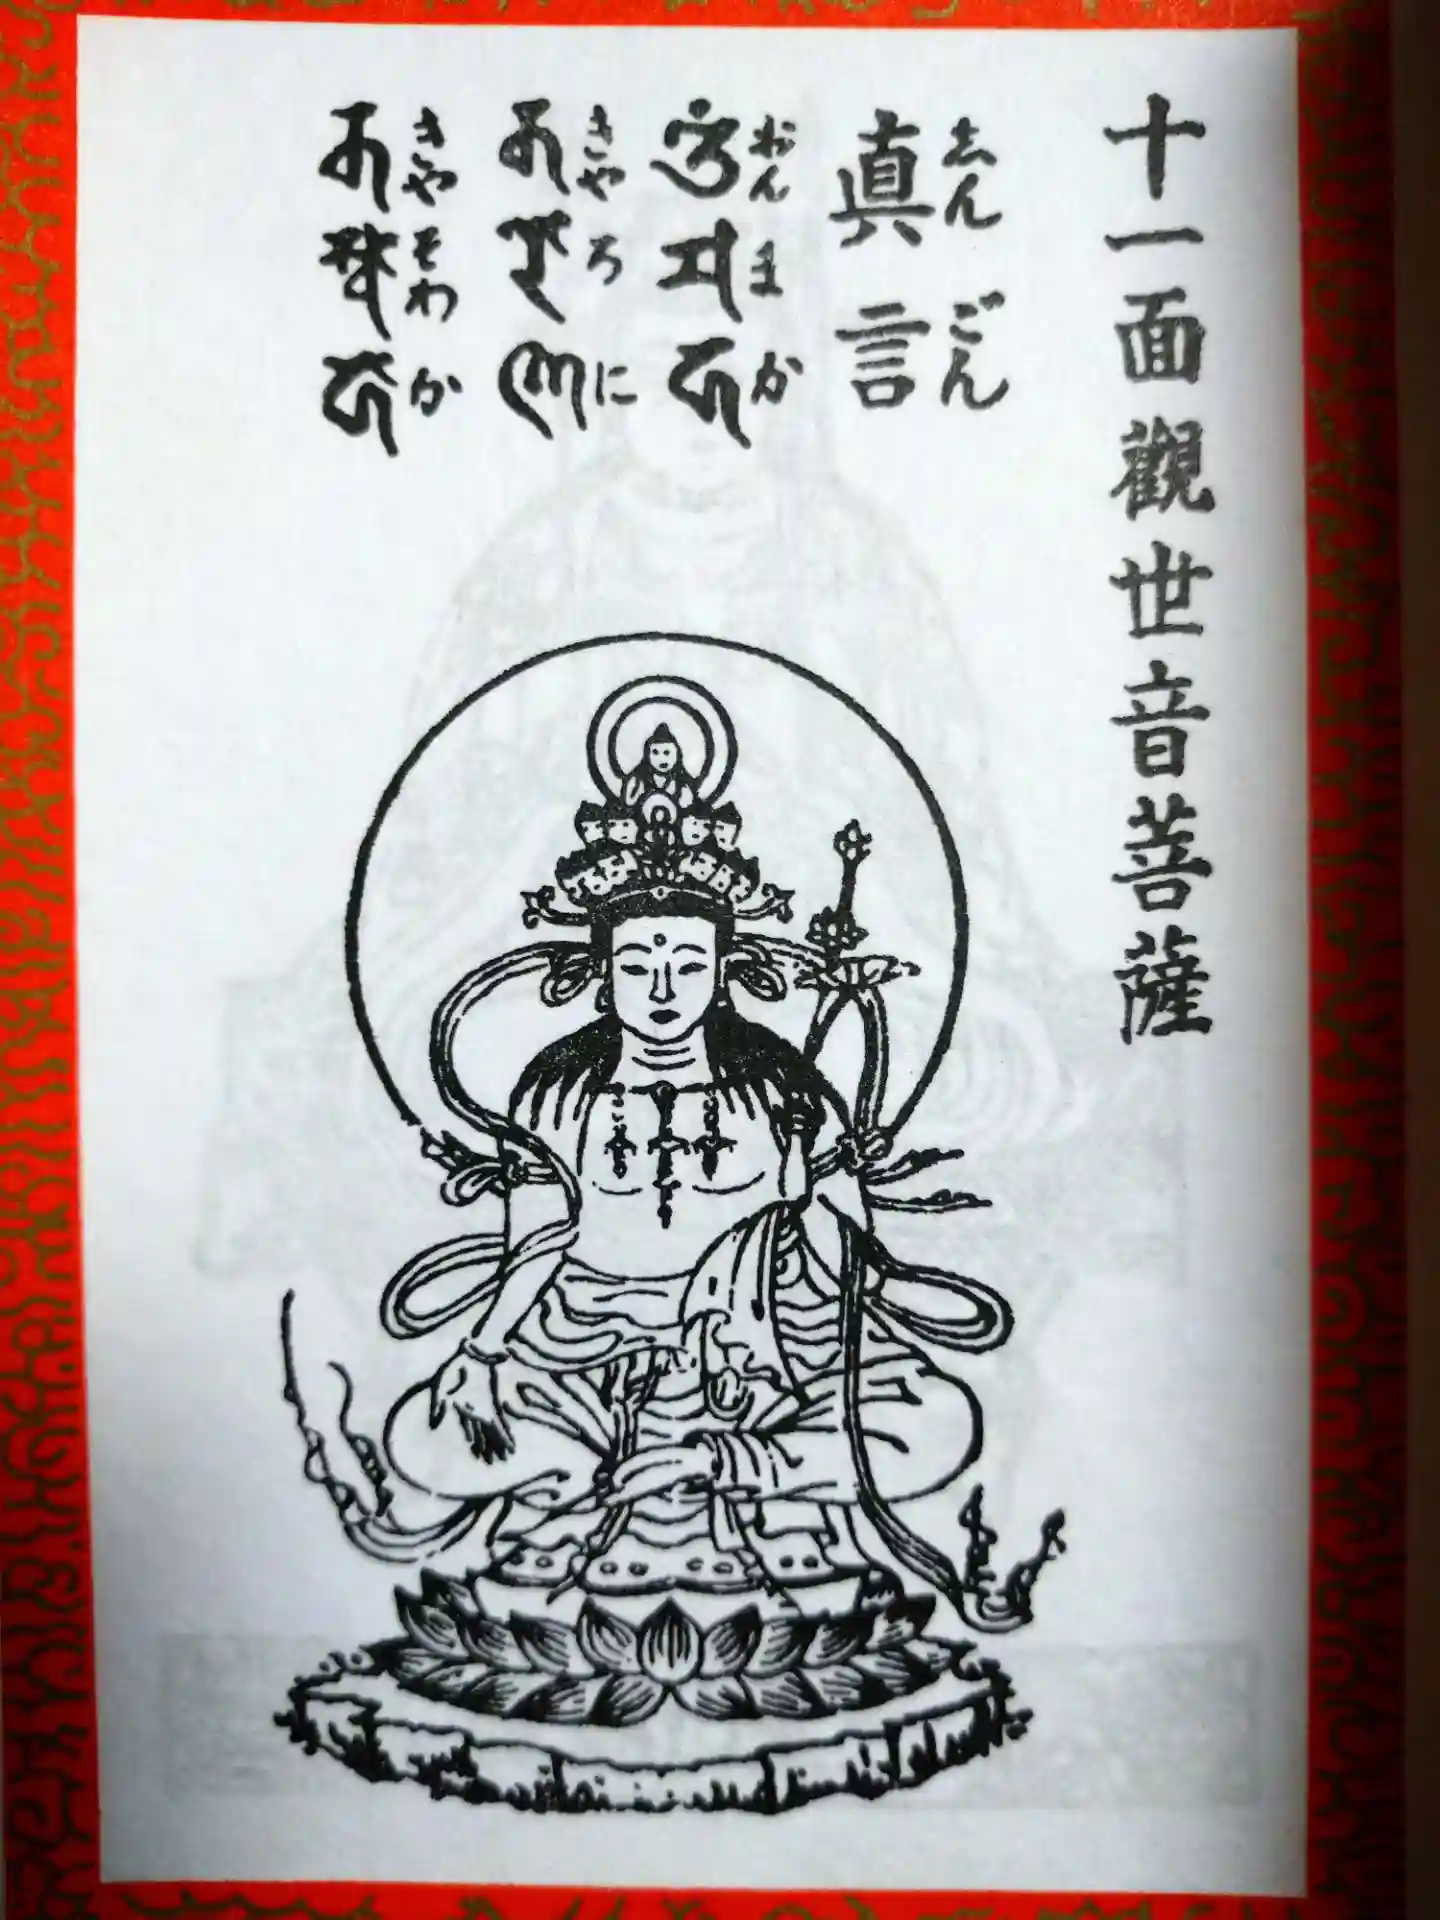 十一面觀世音菩薩
しんごん
真言
おんまか
きやろに
きやそわか